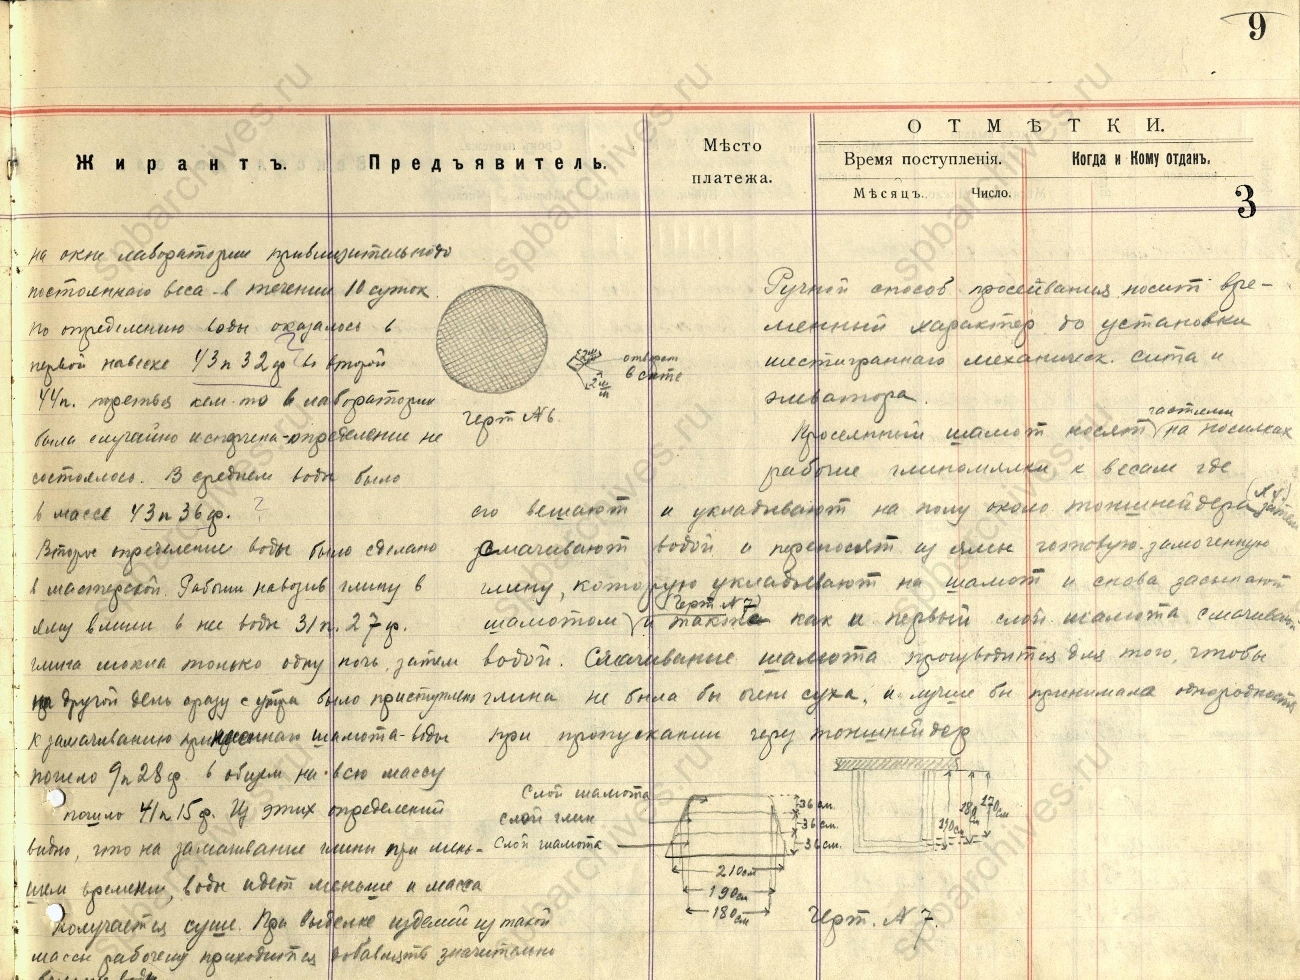 9
ОТМѢТКИ.
Жирантъ. Предъявитель. Мѣсто платежа. Время поступленія. Когда и Кому отданъ.
Мѣсяцъ. Число.
3
на окне лаборатории приблизительно до
постоянного веса в течении 10 суток.
По определению воды оказалось в
первой навеске 43п 32ф во второй
44п. третья кем-то в лаборатории
была случайно испорчена-определение не
состоялось. В среднем воды было
в массе 43п 36ф. ?
Второе определение воды было сделано
в мастерской. Рабочии навозив глину в
яму влили в нее воды 31п. 27ф.
глина мокла только одну ночь, затем
на другой день сразу с утра было приступлено
к замачиванию шамота-воды
пошло 9п 28ф в общем на всю массу
пошло 41п 15ф. Из этих определений
видно, что на замачивание глины при мень-
шем времени, воды идет меньше и масса
получается суше. При выделке изделий из такой
массы рабочему приходится добавлять значительно
воды
отверст
в сите
2 м/м
2 м/м
Черт №6.
Ручной способ просеивания носит вре-
менный характер до установки
шестигранного механическ. сита и
элеватора.
Просеянный шамот носят на носилках
рабочие глиномялки к весам где
его вешают и укладывают на полу около тоншнейдера
смачивают водой и переносят из ямы готовую-замоченную
глину, которую укладывают на шамот и снова засыпают
(Черт №7)
шамотом и также как и первый слой шамота смачивают
водой. Смачивание шамота производится для того, чтобы
глина не была бы очень суха, и лучше бы принимала однородность
при пропускании через тоншнейдер
Слой шамота
слой глин
Слой шамота
36 см.
36 см.
36 см.
210см
190см
180см
210см
180
270см
Черт. №7.
spbarchives.ru